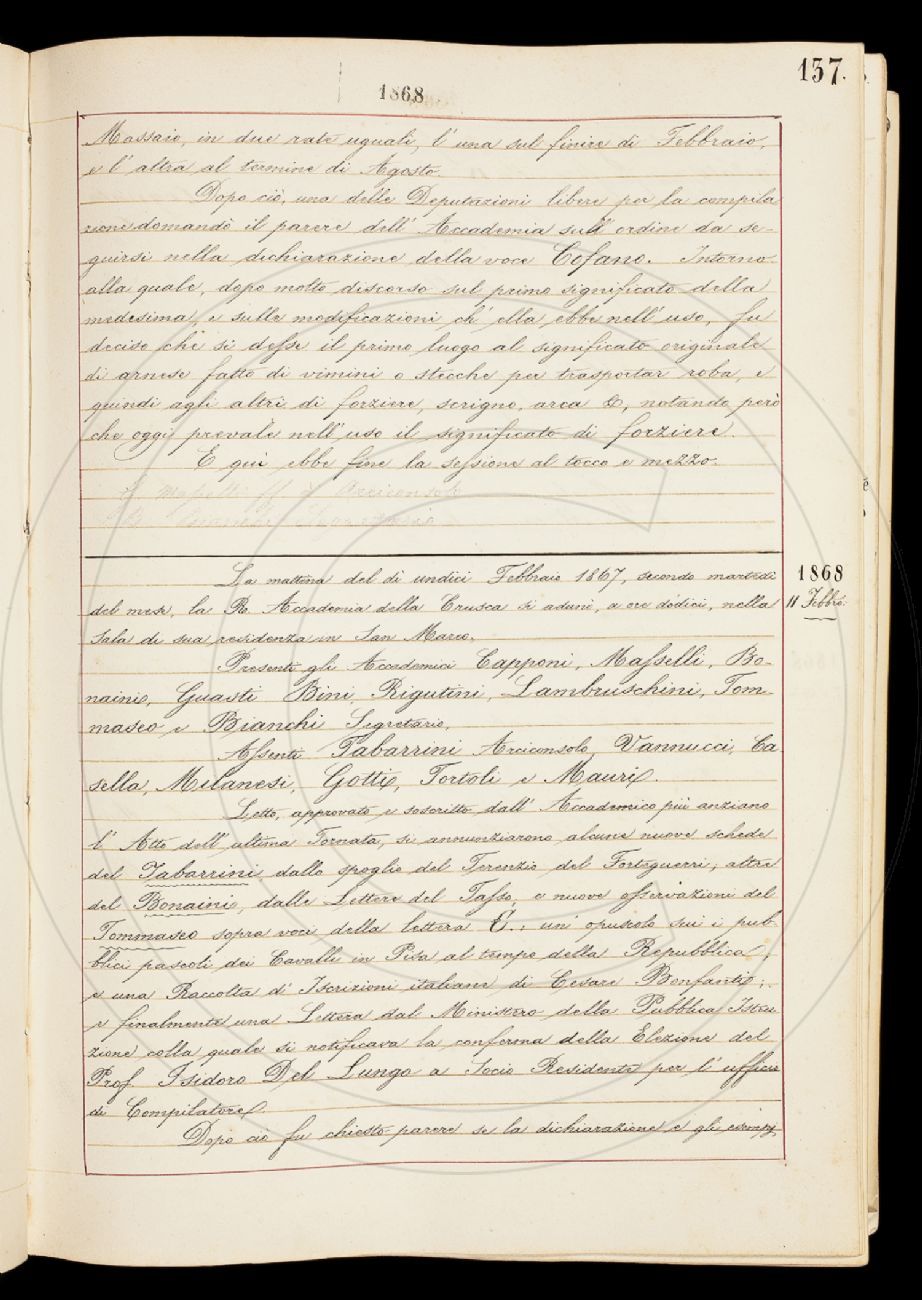 137.
1868
Massaio, in due rate uguali, l'una sul finire di Febbraio,
e l'altra al termine di Agosto.
Dopo ciò, una delle Deputazioni libere per la compila
zione domandò il parere dell'Accademia sull'ordine da se-
guirsi nella dichiarazione della voce Cofano. Intorno
alla quale, dopo molto discorso sul primo significato della
medesima, e sulle modificazioni ch'ella ebbe nell'uso, fu
deciso che si desse il primo luogo al significato originale
di arnese fatto di vimini o stecche per trasportar roba, e
quindi agli altri di forziere, scrigno, arca &, notando però
che oggi prevale nell'uso il significato di forziere.
E qui ebbe fine la sessione al tocco e mezzo.
Arciconsolo
1868
11 Febbro.
La mattina del dì undici Febbraio 1867, secondo martedì
del mese, la R. Accademia della Crusca si adunò, a ore dodici, nella
Sala di sua residenza in San Marco.
Presenti gli Accademici Capponi, Masselli, Bo-
naini, Guasti Bini, Rigutini, Lambruschini, Tom-
maseo e Bianchi Segretario.
Assenti Tabarrini Arciconsolo, Vannucci, Ca
sella, Milanesi, Gotti, Tortoli e Mauri.
Letto, approvato e soscritto dall'Accademico più anziano
l'Atto dell'ultima Tornata, si annunziarono alcune nuove schede
del Tabarrini dallo spoglio del Terenzio del Forteguerri; altre
del Bonaini, dalle Lettere del Tasso, e nuove osservazioni del
Tommaseo sopra voci della lettera E.: un'opuscolo sui i pub-
blici pascoli dei Cavalli in Pisa al tempo della Repubblica,
e una Raccolta d'Iscrizioni italiane di Cesare Bonfanti;
e finalmente una Lettera dal Ministero della Pubblica Istru
zione colla quale si notificava la conferma della Elezione del
Prof. Isidoro Del Lungo a Socio Residente per l'ufficio
di Compilatore.
Dopo ciò fu chiesto parere se la dichiarazione e gli esempj